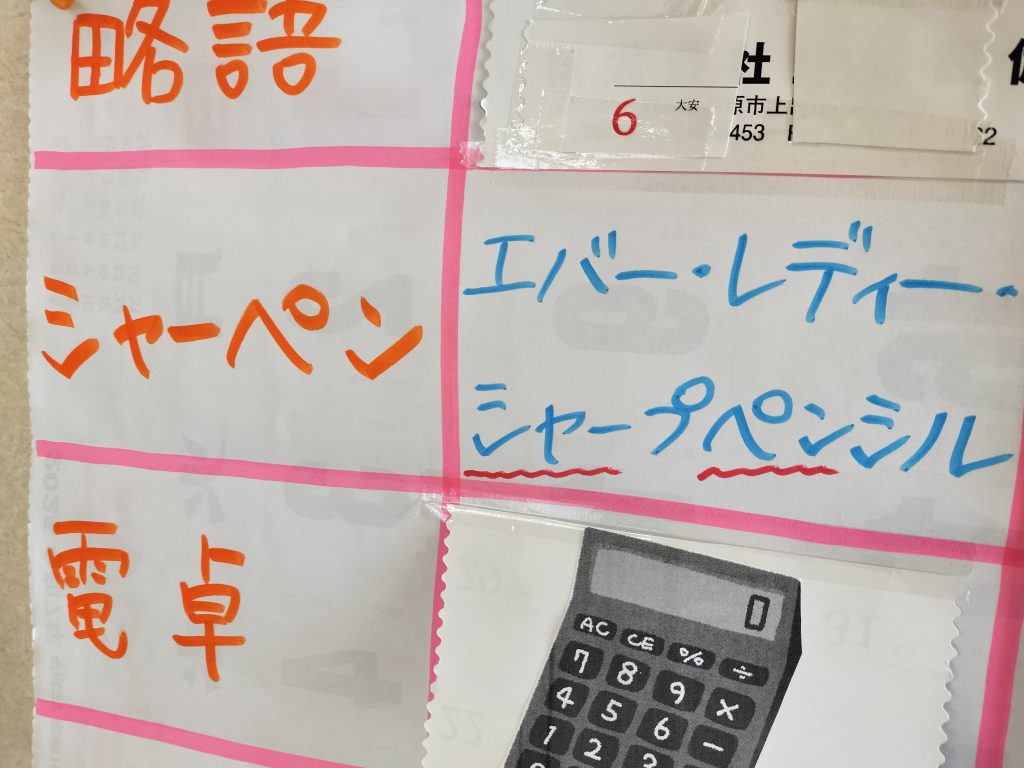 略語
社
6 大安
原市上
453
シャーペン
エバー・レディー・
シャープペンシル
電卓
0
AC CE % ÷
7 8 9 ×
4 5 6 −
1 2 3